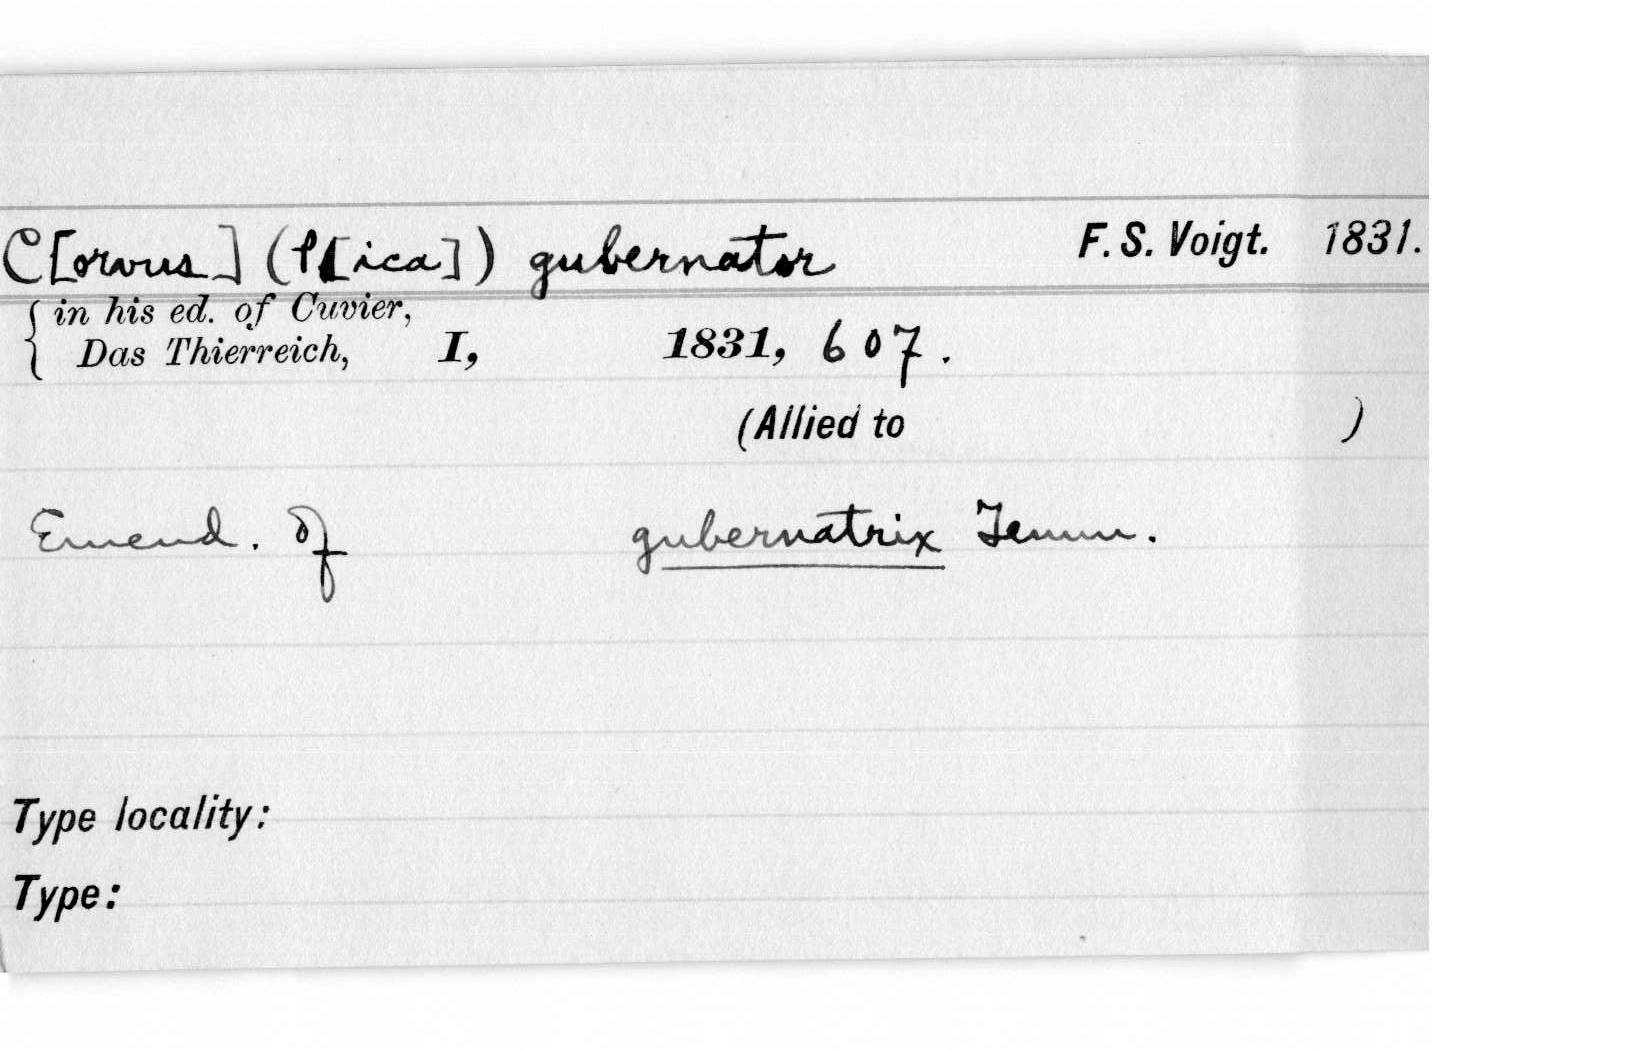 C[orvus] (P[ica]) gubernator F. S. Voigt. 1831.
{ in his ed. of Cuvier,
Das Thierreich, I, 1831, 607.
(Allied to )
Emend. of gubernatrix Temm.
Type locality:
Type: